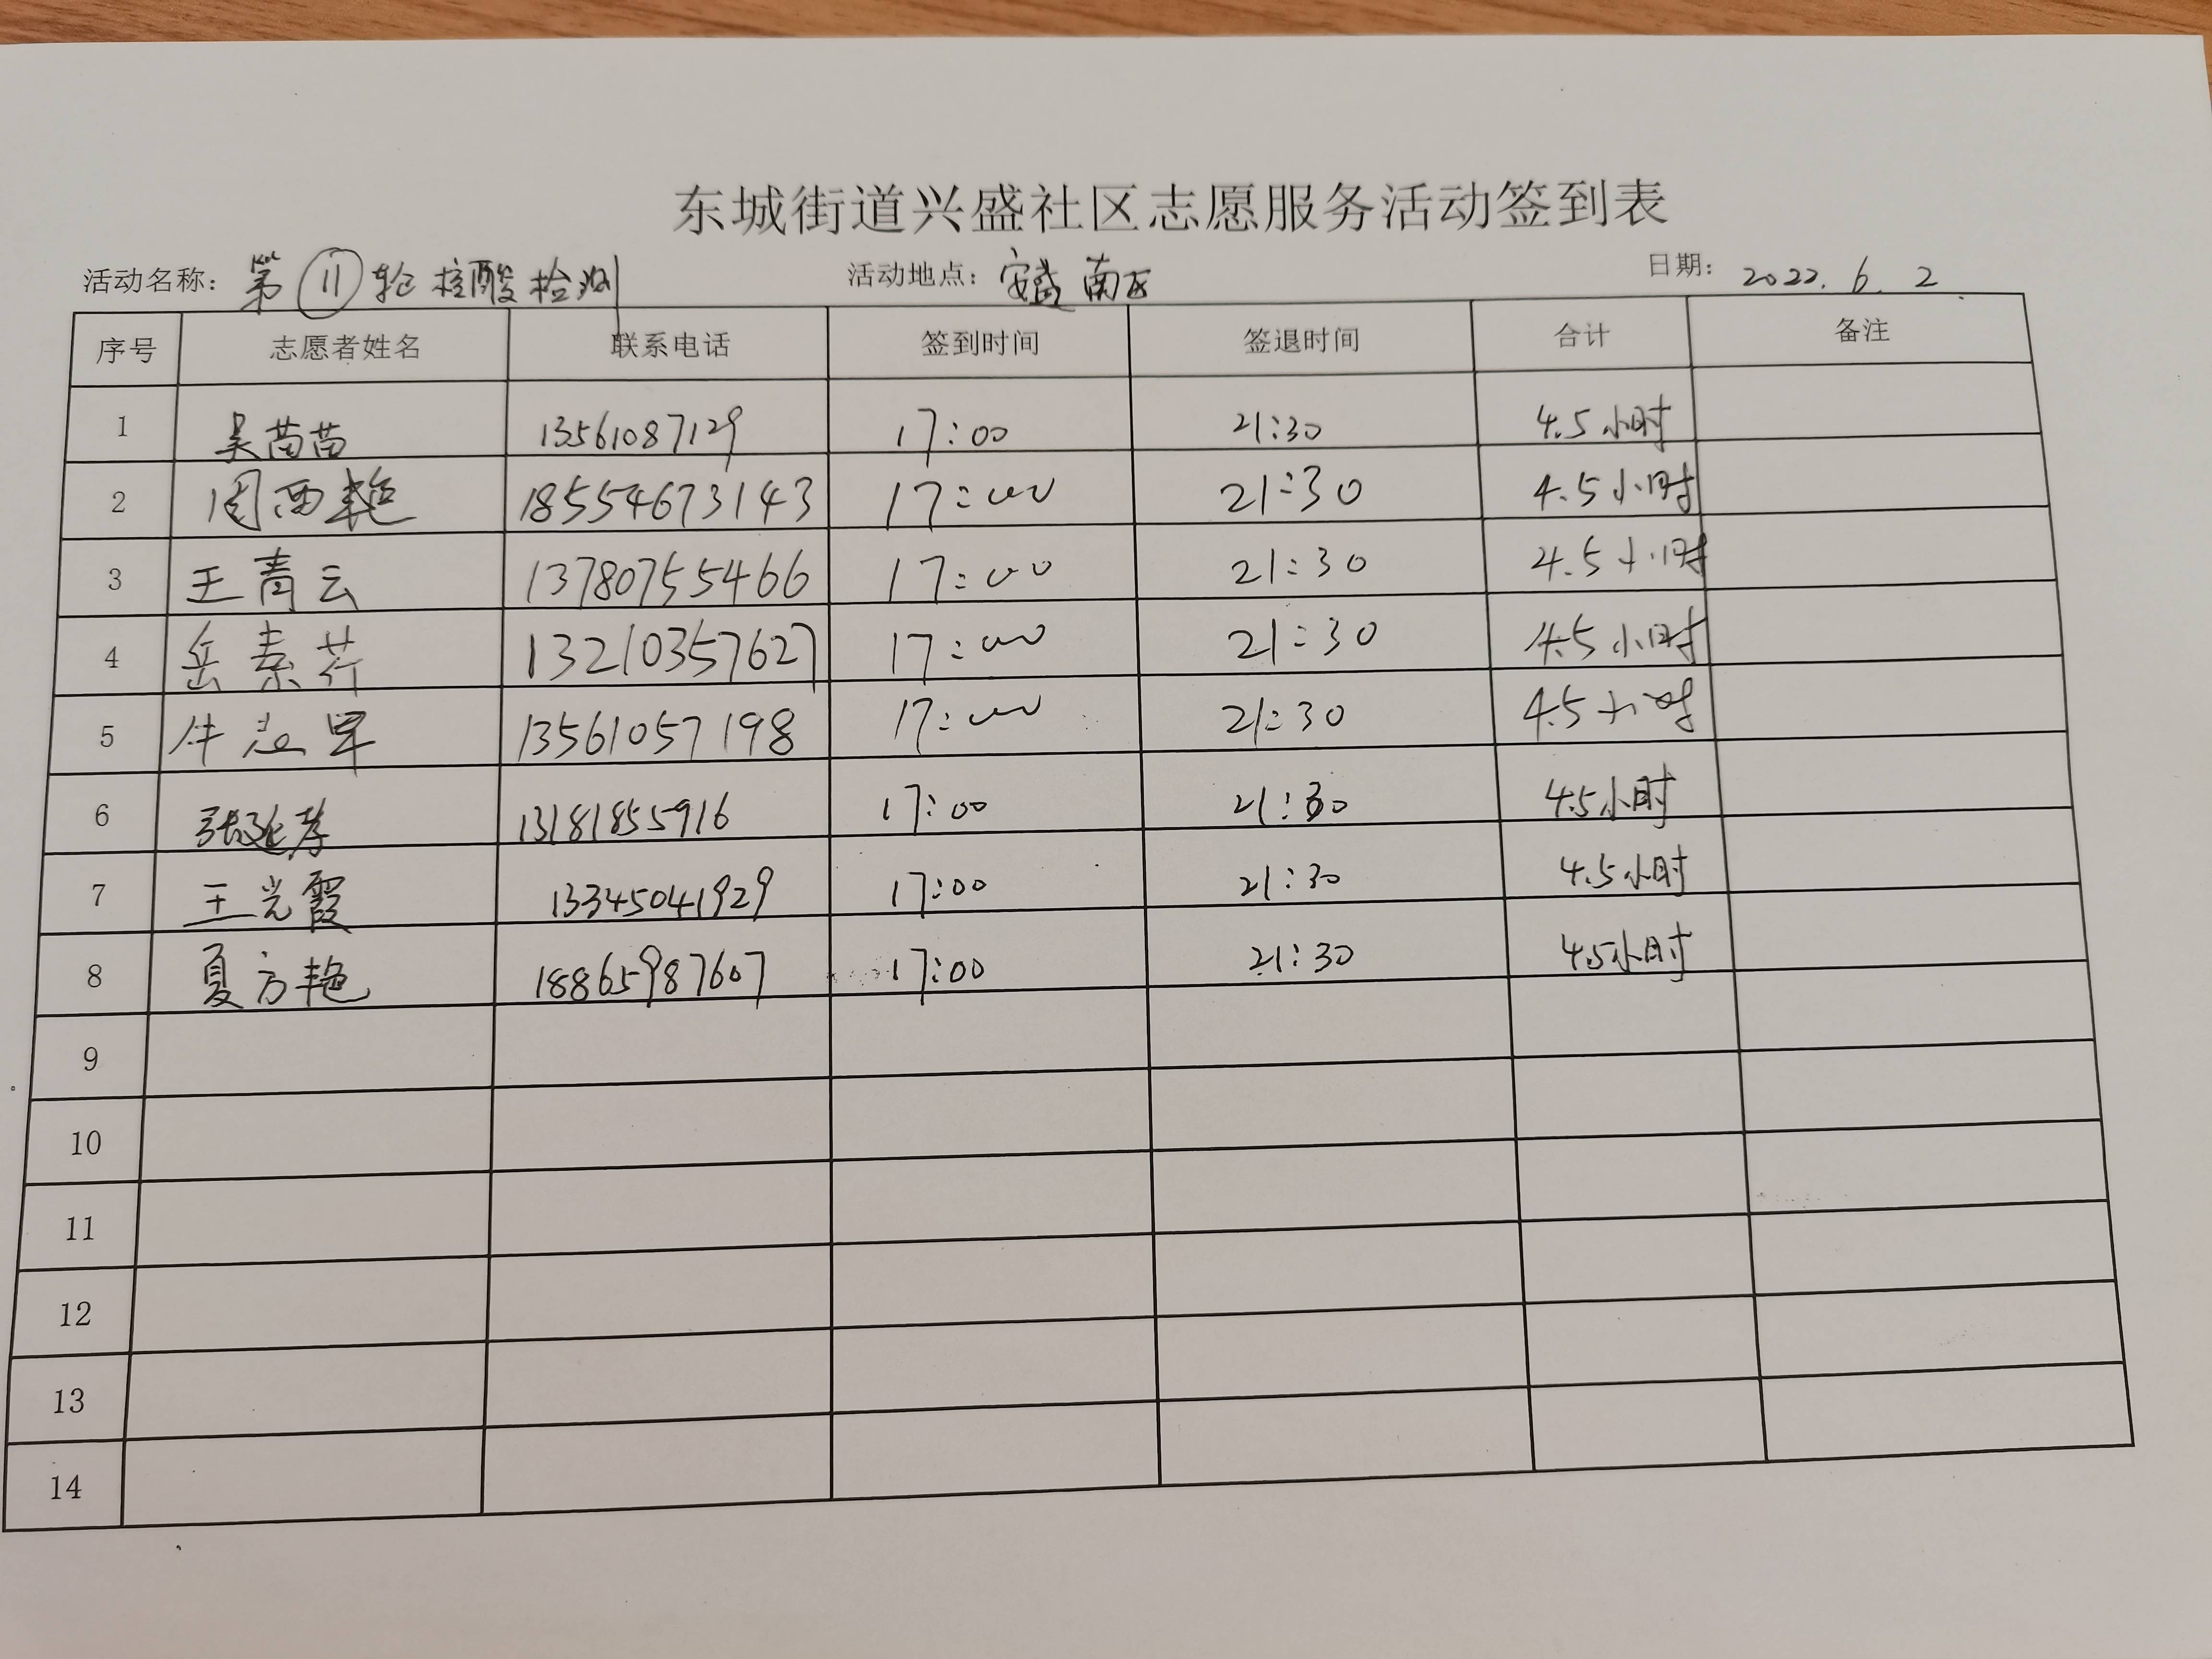 东城街道兴盛社区志愿服务活动签到表
活动名称：第⑪轮核酸检测 活动地点：安盛南区 日期：2022.6.2
序号 志愿者姓名 联系电话 签到时间 签退时间 合计 备注
1 吴苗苗 13561087129 17:00 21:30 4.5小时
2 周西艳 18554673143 17:00 21:30 4.5小时
3 王青云 13780755466 17:00 21:30 4.5小时
4 岳素芹 13210357627 17:00 21:30 4.5小时
5 牛 13561057198 17:00 21:30 4.5小时
6 张延孝 13181855916 17:00 21:30 4.5小时
7 王光霞 13345041929 17:00 21:30 4.5小时
8 夏方艳 18865987607 17:00 21:30 4.5小时
9
10
11
12
13
14